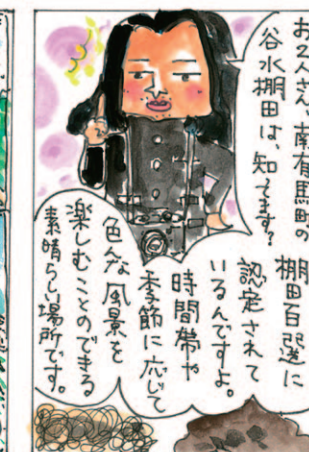 お2人さん、南有馬町の
谷水棚田は、知ってます?
棚田百選に
認定されて
いるんですよ。
時間帯や
季節に応じて
色んな風景を
楽しむことのできる
素晴らしい場所です。